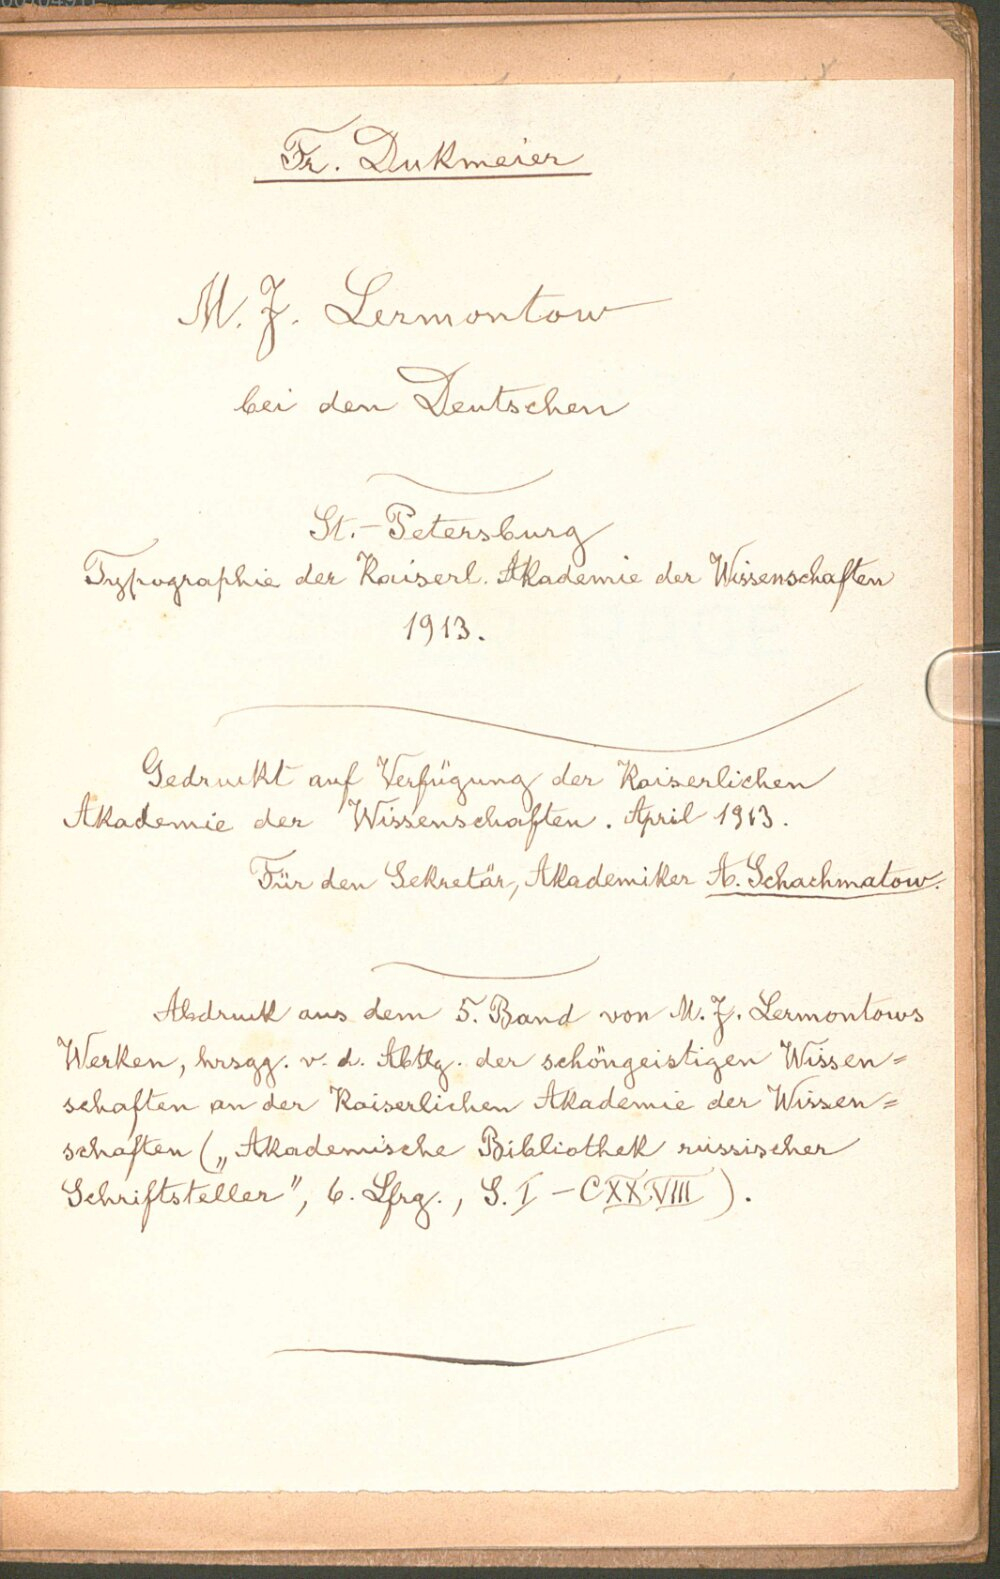 Fr. Dukmeier
M. J. Lermontow
bei den Deutschen
St.-Petersburg
Typographie der Kaiserl. Akademie der Wissenschaften
1913.
Gedruckt auf Verfügung der Kaiserlichen
Akademie der Wissenschaften. April 1913.
Für den Sekretär, Akademiker A. Schachmatow.
Abdruck aus dem 5. Band von M. J. Lermontows
Werken, hrsgg. v. d. Abtlg. der schöngeistigen Wissen=
schaften an der Kaiserlichen Akademie der Wissen=
schaften („Akademische Bibliothek russischer
Schriftsteller", 6. Lfrg., S. I – CXXVIII).